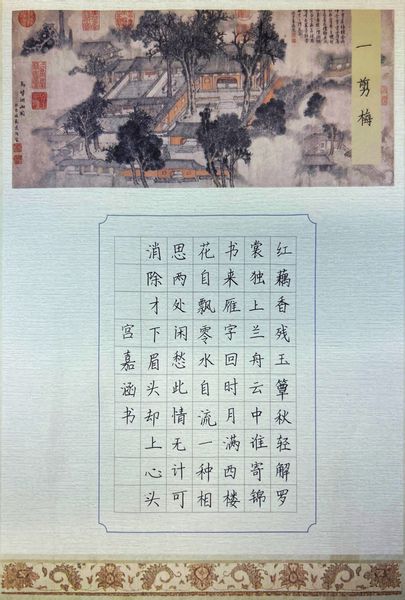 一剪梅
红藕香残玉簟秋轻解罗
裳独上兰舟云中谁寄锦
书来雁字回时月满西楼
花自飘零水自流一种相
思两处闲愁此情无计可
消除才下眉头却上心头
宫嘉涵书